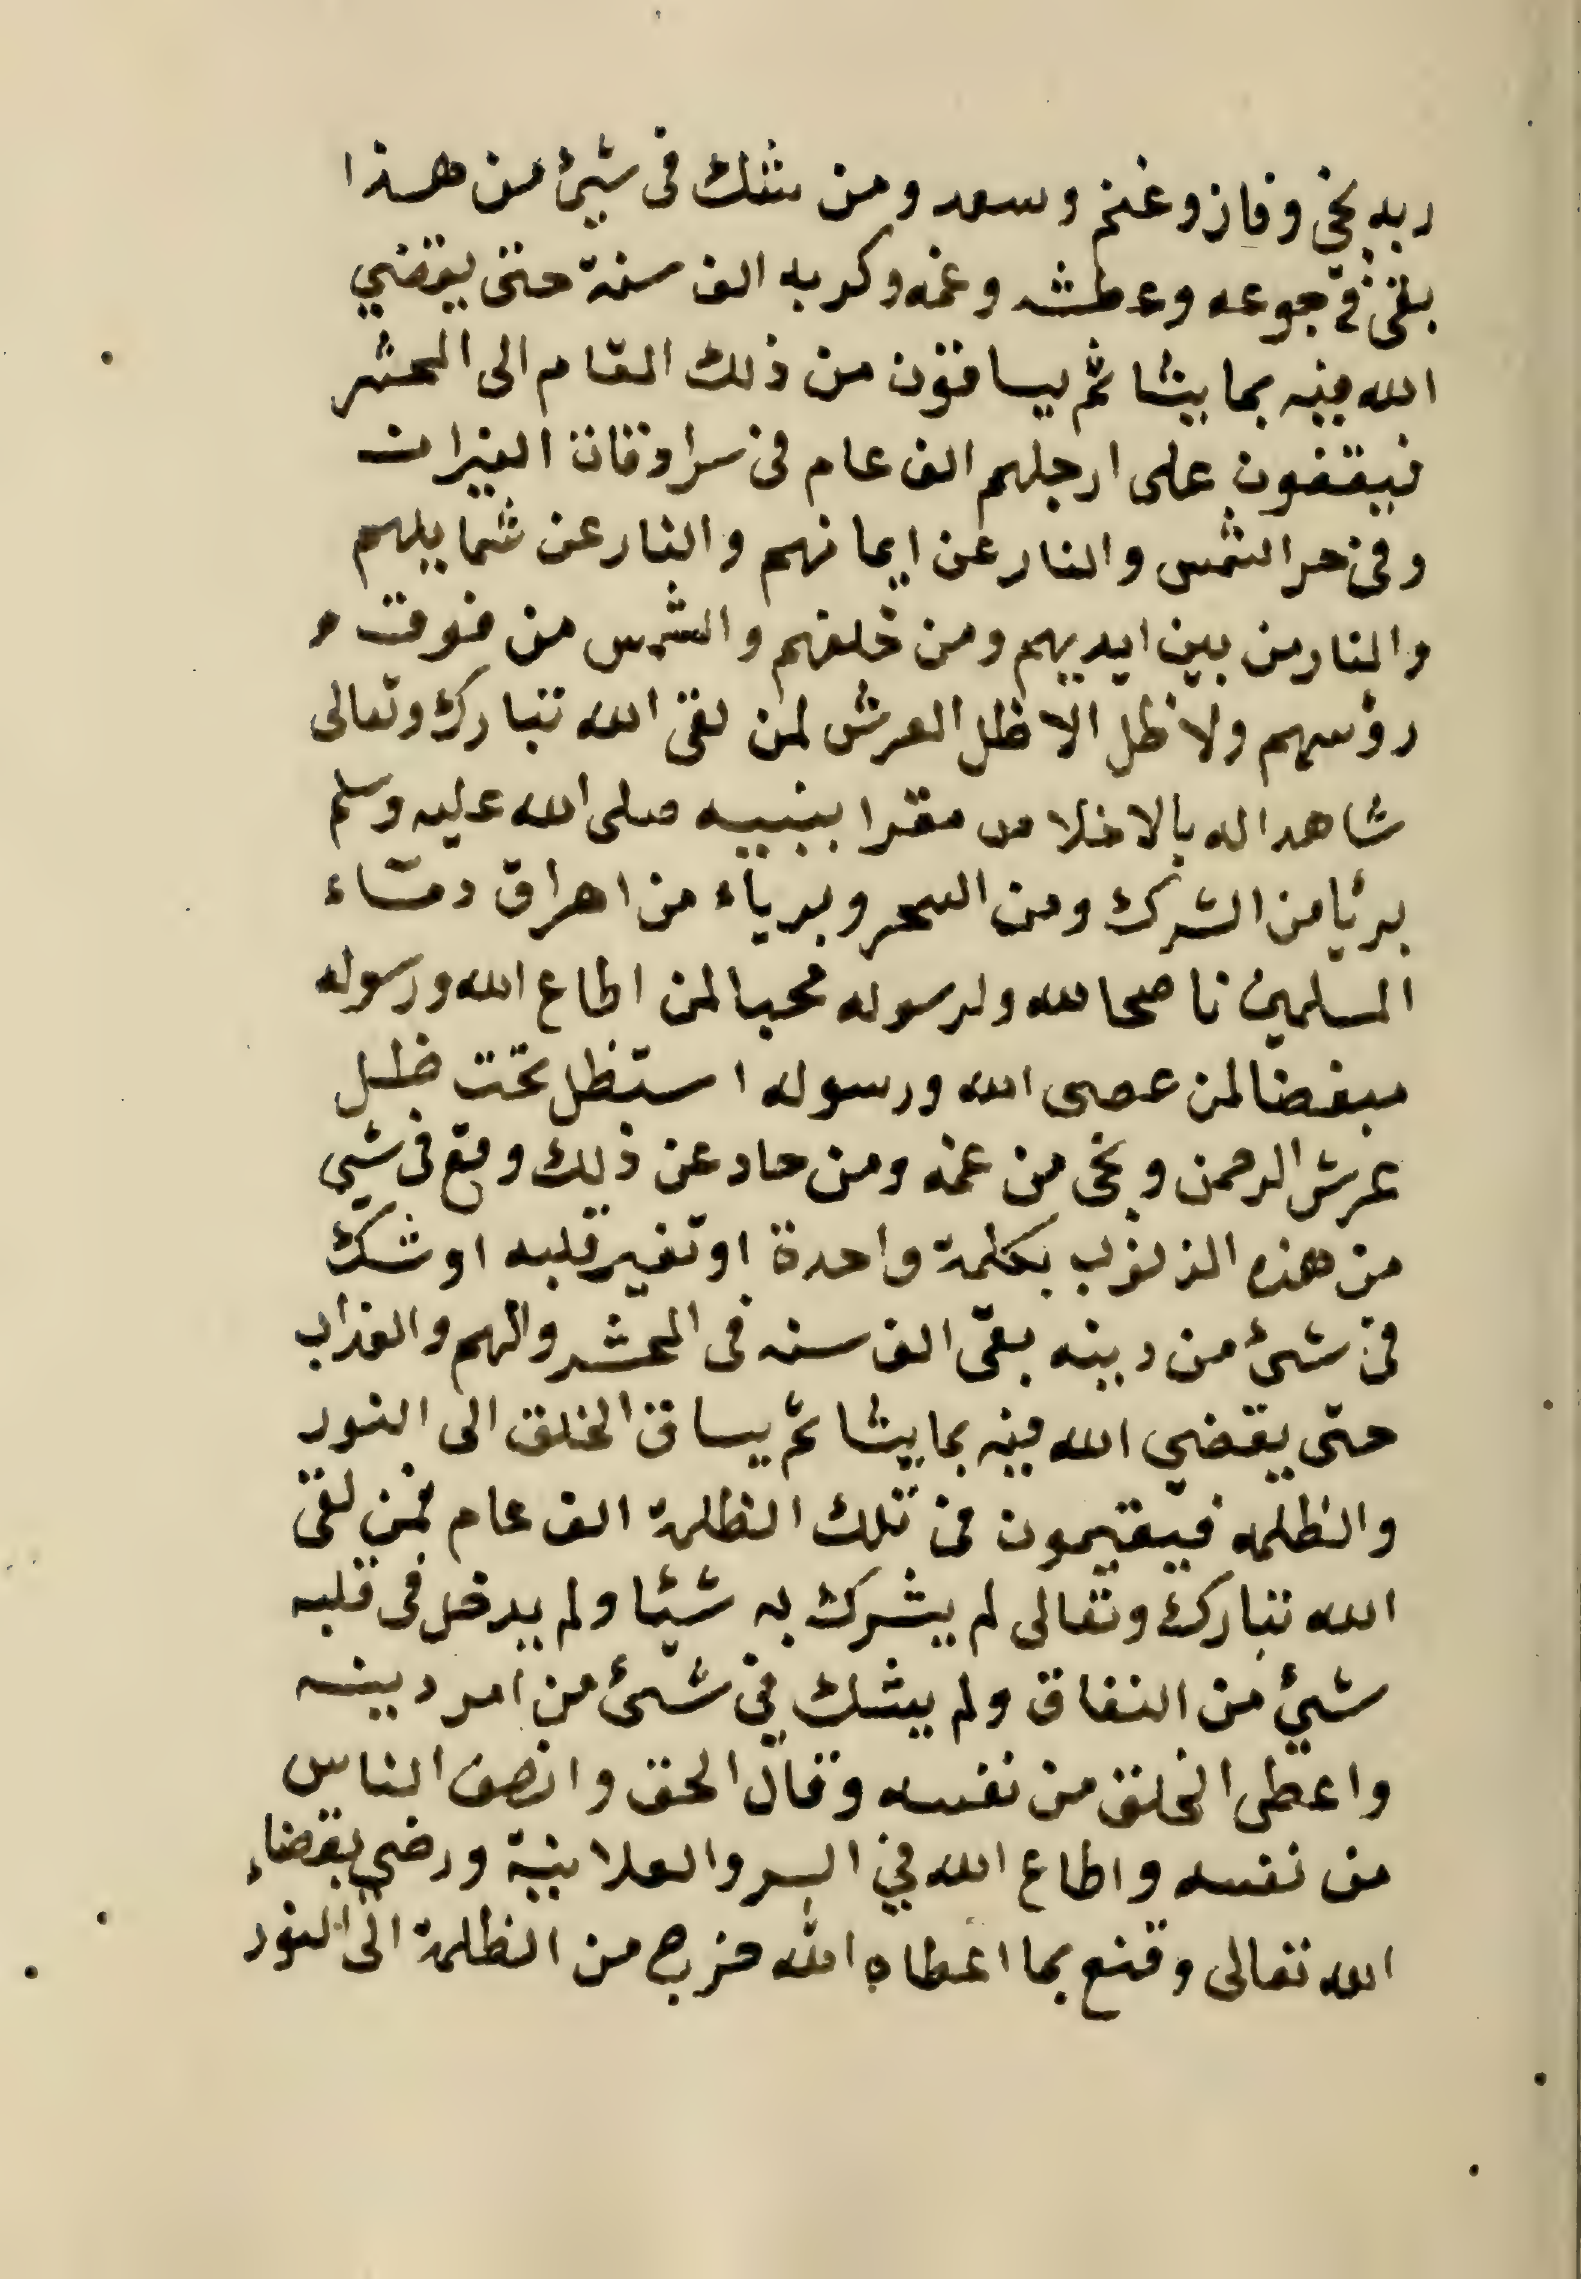 ربه نجى وفاز وغنم وسعد ومن شك فى شيئ من هذا
بقى فى جوعه وعطشه وغمه وكربه الف سنة حتى يقضي
الله فيه بما يشا ثم يساقون من ذلك المقام الى المحشر
فيقفون على ارجلهم الف عام فى سرادقات النيرات
وفى حر الشمس والنار عن ايمانهم والنار عن شمايلهم
والنار من بين ايديهم ومن خلفهم والشمس من فوق
رؤسهم ولا ظل الا ظل العرش لمن لقى الله تبارك وتعالى
شاهدا له بالاخلاص مقرا بنبيه صلى الله عليه وسلم
برئيا من الشرك ومن السحر وبرياء من اهراق دماء
المسلمين ناصحا لله ولرسوله محبا لمن اطاع الله ورسوله
مبغضا لمن عصى الله ورسوله استظل تحت ظل
عرش الرحمن ونجى من غمه ومن حاد عن ذلك وقع فى شيى
من هذه الذنوب بكلمة واحدة او تغير قلبه او شك
فى شئ من دينه بقى الف سنه فى المحشر والهم والعذاب
حتى يقضي الله فيه بما يشا ثم يساق الخلق الى النور
والظلمه فيقيمون فى تلك الظلمة الف عام فمن لقى
الله تبارك وتعالى لم يشرك به شيئا ولم يدخل فى قلبه
شيئ من النفاق ولم يشك فى شئ من امر دينه
واعطى الخلق من نفسه وقال الحق وانصف الناس
من نفسه واطاع الله في السر والعلانية ورضي بقضاء
الله تعالى وقنع بما اعطاه الله خرج من الظلمة الى النور